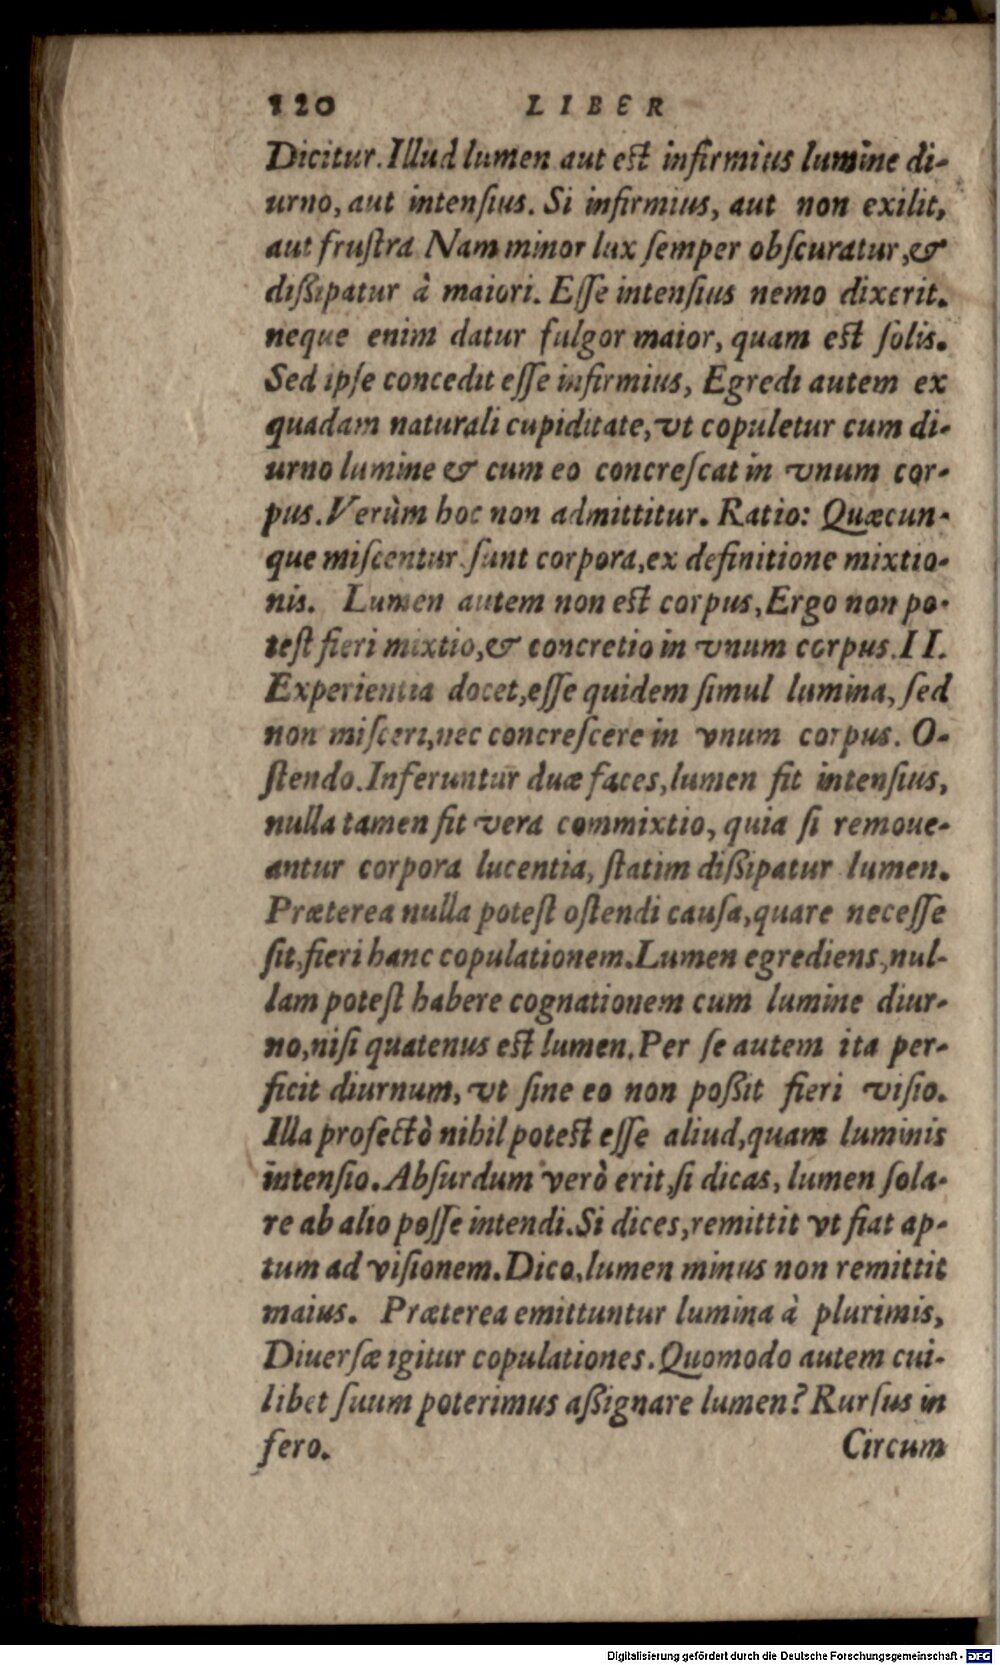 120 LIBER
Dicitur. Illud lumen aut est infirmius lumine di-
urno, aut intenſius. Si infirmius, aut non exilit,
aut fruſtra Nam minor lux ſemper obſcuratur, &
diſsipatur à maiori. Eſſe intenſius nemo dixerit.
neque enim datur fulgor maior, quam est ſolis.
Sed ipſe concedit eſſe infirmius, Egredi autem ex
quadam naturali cupiditate, vt copuletur cum di-
urno lumine & cum eo concreſcat in vnum cor-
pus. Verùm hoc non admittitur. Ratio: Quæcun-
que miſcentur ſunt corpora, ex definitione mixtio-
nis. Lumen autem non est corpus, Ergo non po-
teſt fieri mixtio, & concretio in vnum corpus. II.
Experientia docet, eſſe quidem ſimul lumina, ſed
non miſceri, nec concreſcere in vnum corpus. O-
ſtendo. Inferuntur duæ faces, lumen fit intenſius,
nulla tamen fit vera commixtio, quia ſi remoue-
antur corpora lucentia, ſtatim diſsipatur lumen.
Præterea nulla poteſt oſtendi cauſa, quare neceſſe
ſit, fieri hanc copulationem. Lumen egrediens, nul-
lam poteſt habere cognationem cum lumine diur-
no, niſi quatenus est lumen. Per ſe autem ita per-
ficit diurnum, vt ſine eo non poſsit fieri viſio.
Illa profectò nihil potest eſſe aliud, quam luminis
intenſio. Abſurdum verò erit, ſi dicas, lumen ſola-
re ab alio poſſe intendi. Si dices, remittit vt fiat ap-
tum ad viſionem. Dico, lumen minus non remittit
maius. Præterea emittuntur lumina à plurimis,
Diuerſæ igitur copulationes. Quomodo autem cui-
libet ſuum poterimus aſsignare lumen? Rurſus in
fero. Circum
Digitalisierung gefördert durch die Deutsche Forschungsgemeinschaft - DFG